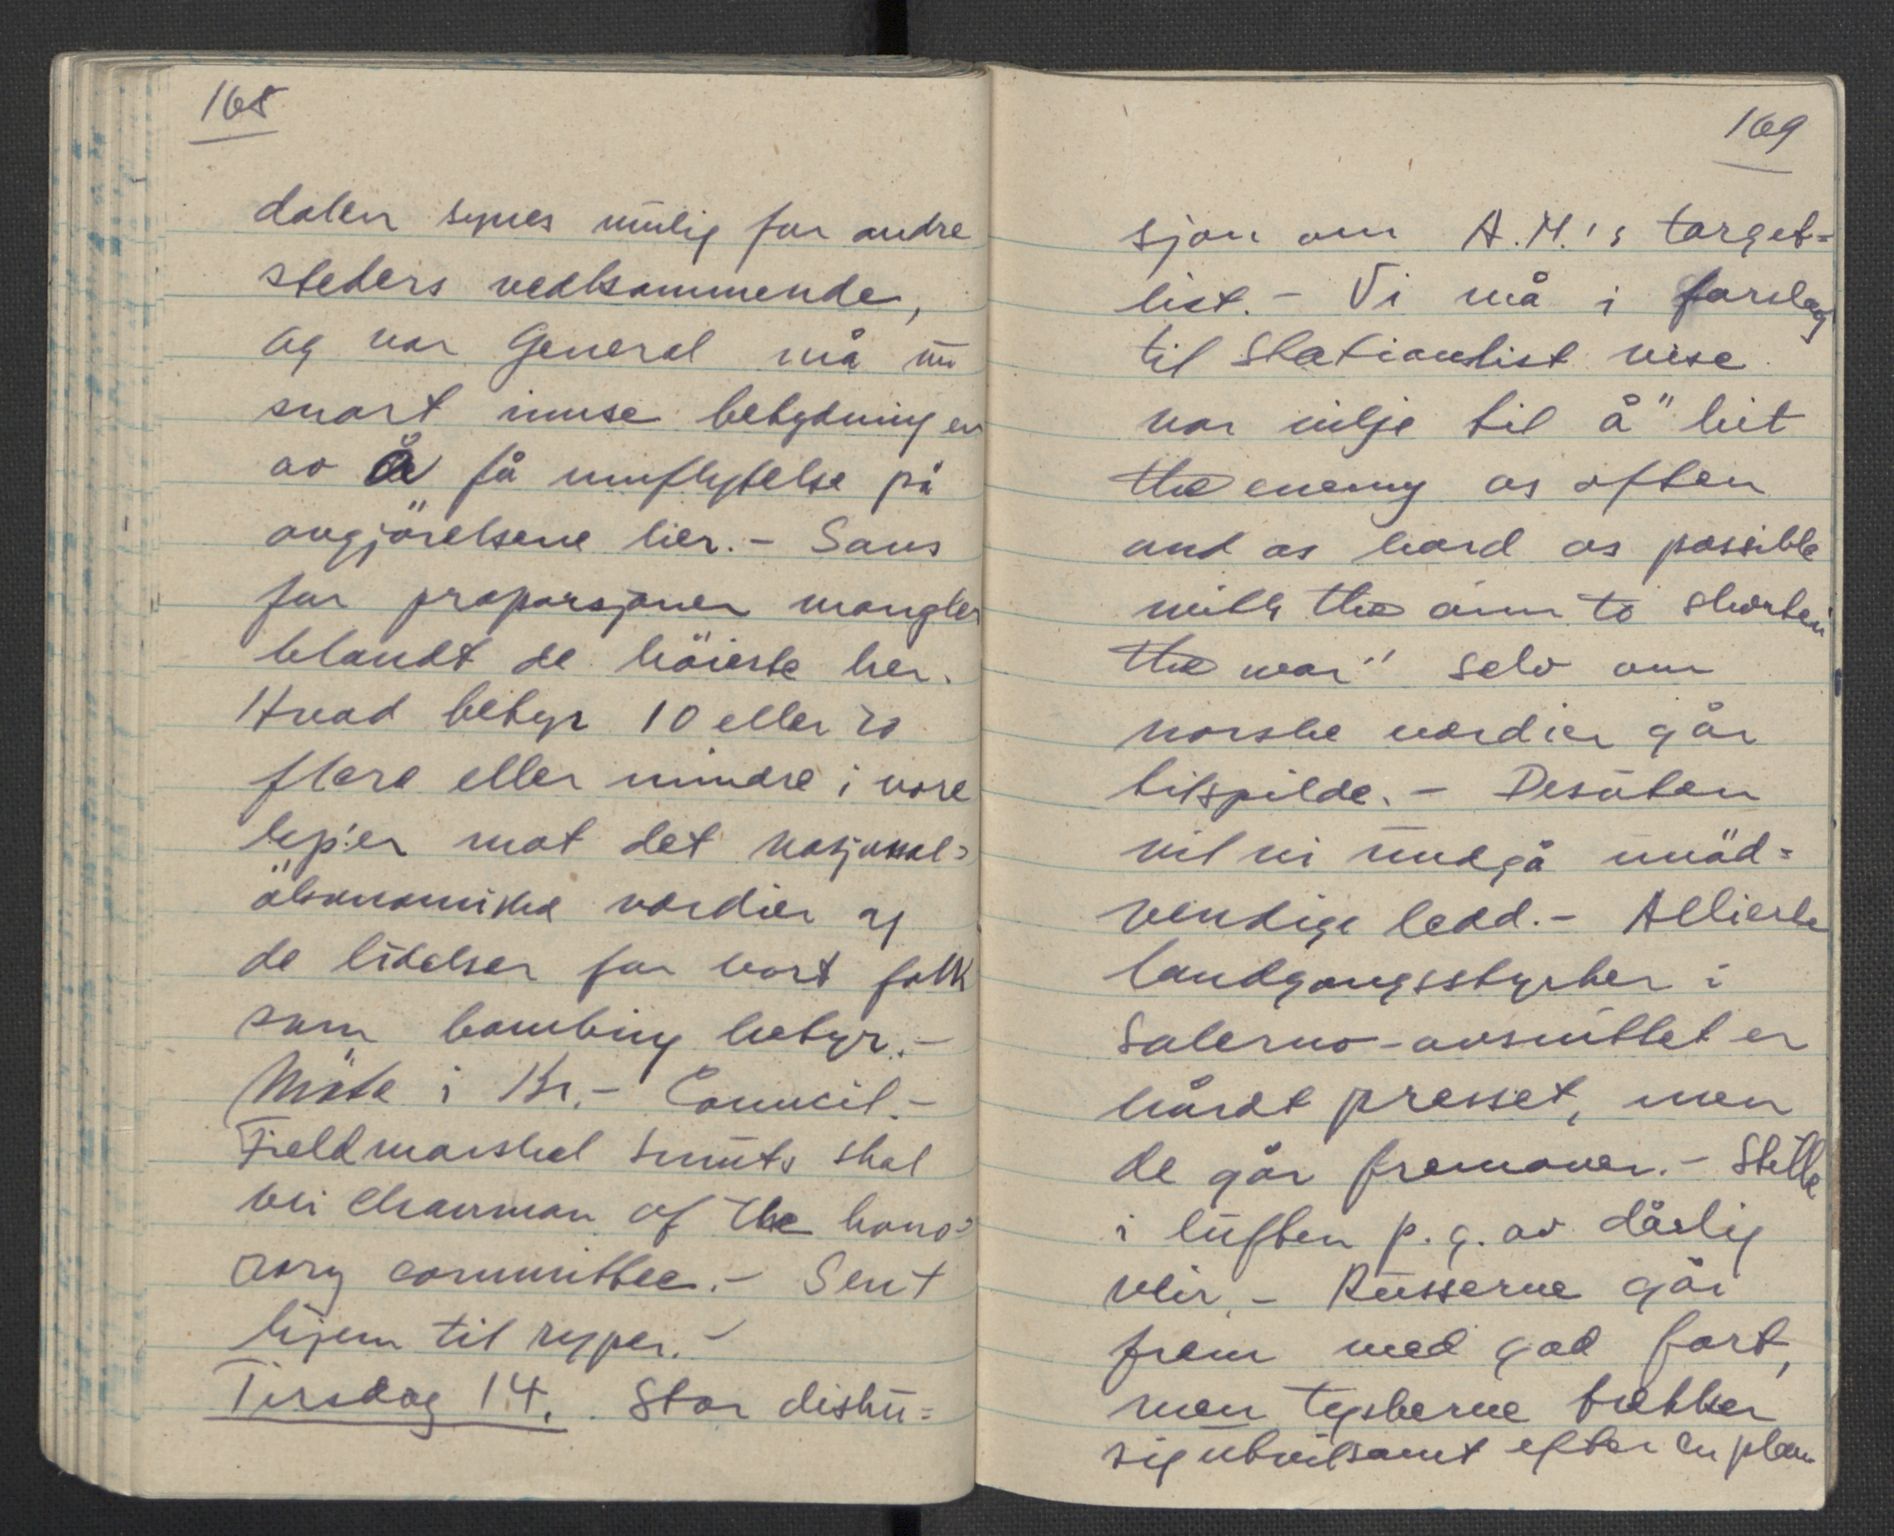 168
dalen synes umulig for andre
steders vedkommende,
og vor General må nu
snart innse betydningen
av å få innflytelse på
avgjörelsene her. - Sans
for proporsjoner mangler
blandt de höieste her.
Hvad betyr 10 eller 20
flere eller mindre i vore
kp:er mot det nasjonal=
ökonomiske værdier og
de lidelser for vort folk
som bombing betyr. -
Möte i Br. - Council. -
Fieldmarshal Smuts skal
bli chairman of the hono=
rary committee. - Sent
hjem til ryper. -
Tirsdag 14. Stor disku=
169
sjon om A.M.'s target=
list. - Vi må i forslag
til Stationlist vise
vor vilje til å "hit
the enemy as often
and as hard as possible
with the aim to shorten
the war" selv om
norske værdier går
tilspilde. - Desuten
vil vi undgå unöd=
vendige ledd. - Allierte
landgangsstyrker i
Salerno-avsnittet er
hårdt presset, men
de går fremover. - Stille
i luften p.g.av dårlig
vær. - Russerne går
frem med god fart,
men tyskerne trekker
sig utvilsomt efter en plan